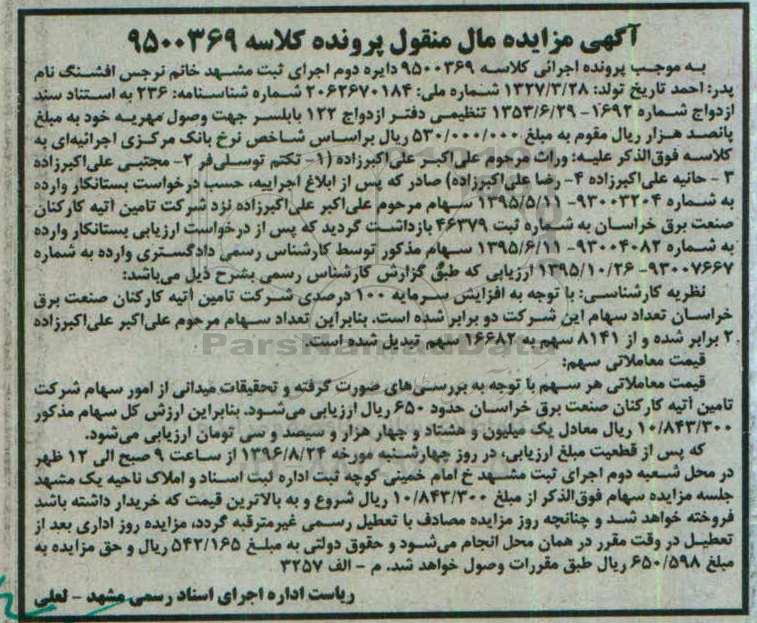 آگهی مزایده مال منقول پرونده کلاسه ۹۵۰۰۳۶۹
به موجب پرونده اجرائی کلاسه ۹۵۰۰۳۶۹ دایره دوم اجرای ثبت مشهد خانم نرجس افشنگ نام
پدر: احمد تاریخ تولد: ۱۳۲۷/۳/۲۸ شماره ملی: ۲۰۶۲۶۷۰۱۸۴ شماره شناسنامه: ۲۳۶ به استناد سند
ازدواج شماره ۱۶۹۲- ۱۳۵۳/۶/۲۹ تنظیمی دفتر ازدواج ۱۲۲ بابلسر جهت وصول مهریه خود به مبلغ
پانصد هزار ریال مقوم به مبلغ ۵۳۰/۰۰۰/۰۰۰ ریال براساس شاخص نرخ بانک مرکزی اجرائیه‌ای به
کلاسه فوق‌الذکر علیه: وراث مرحوم علی‌اکبر علی‌اکبرزاده (۱- تکتم توسلی‌فر ۲- مجتبی علی‌اکبرزاده
۳ - حانیه علی‌اکبرزاده ۴- رضا علی‌اکبرزاده) صادر که پس از ابلاغ اجراییه، حسب درخواست بستانکار وارده
به شماره ۹۳۰۰۳۲۰۴- ۱۳۹۵/۵/۱۱ سهام مرحوم علی‌اکبر علی‌اکبرزاده نزد شرکت تامین آتیه کارکنان
صنعت برق خراسان به شماره ثبت ۴۶۳۷۹ بازداشت گردید که پس از درخواست ارزیابی بستانکار وارده
به شماره ۹۳۰۰۴۰۸۲- ۱۳۹۵/۶/۱۱ سهام مذکور توسط کارشناس رسمی دادگستری وارده به شماره
۹۳۰۰۷۶۶۷- ۱۳۹۵/۱۰/۲۶ ارزیابی که طبق گزارش کارشناس رسمی بشرح ذیل می‌باشد:
نظریه کارشناسی: با توجه به افزایش سرمایه ۱۰۰ درصدی شرکت تامین آتیه کارکنان صنعت برق
خراسان تعداد سهام این شرکت دو برابر شده است. بنابراین تعداد سهام مرحوم علی‌اکبر علی‌اکبرزاده
۲ برابر شده و از ۸۱۴۱ سهم به ۱۶۶۸۲ سهم تبدیل شده است.
قیمت معاملاتی سهم:
قیمت معاملاتی هر سهم با توجه به بررسی‌های صورت گرفته و تحقیقات میدانی از امور سهام شرکت
تامین آتیه کارکنان صنعت برق خراسان حدود ۶۵۰ ریال ارزیابی می‌شود. بنابراین ارزش کل سهام مذکور
۱۰/۸۴۳/۳۰۰ ریال معادل یک میلیون و هشتاد و چهار هزار و سیصد و سی تومان ارزیابی می‌شود.
که پس از قطعیت مبلغ ارزیابی، در روز چهارشنبه مورخه ۱۳۹۶/۸/۲۴ از ساعت ۹ صبح الی ۱۲ ظهر
در محل شعبه دوم اجرای ثبت مشهد خ امام خمینی کوچه ثبت اداره ثبت اسناد و املاک ناحیه یک مشهد
جلسه مزایده سهام فوق‌الذکر از مبلغ ۱۰/۸۴۳/۳۰۰ ریال شروع و به بالاترین قیمت که خریدار داشته باشد
فروخته خواهد شد و چنانچه روز مزایده مصادف با تعطیل رسمی غیرمترقبه گردد، مزایده روز اداری بعد از
تعطیل در وقت مقرر در همان محل انجام می‌شود و حقوق دولتی به مبلغ ۵۴۲/۱۶۵ ریال و حق مزایده به
مبلغ ۶۵۰/۵۹۸ ریال طبق مقررات وصول خواهد شد. م - الف ۳۲۵۷
ریاست اداره اجرای اسناد رسمی مشهد - لعلی
ParsNamadData